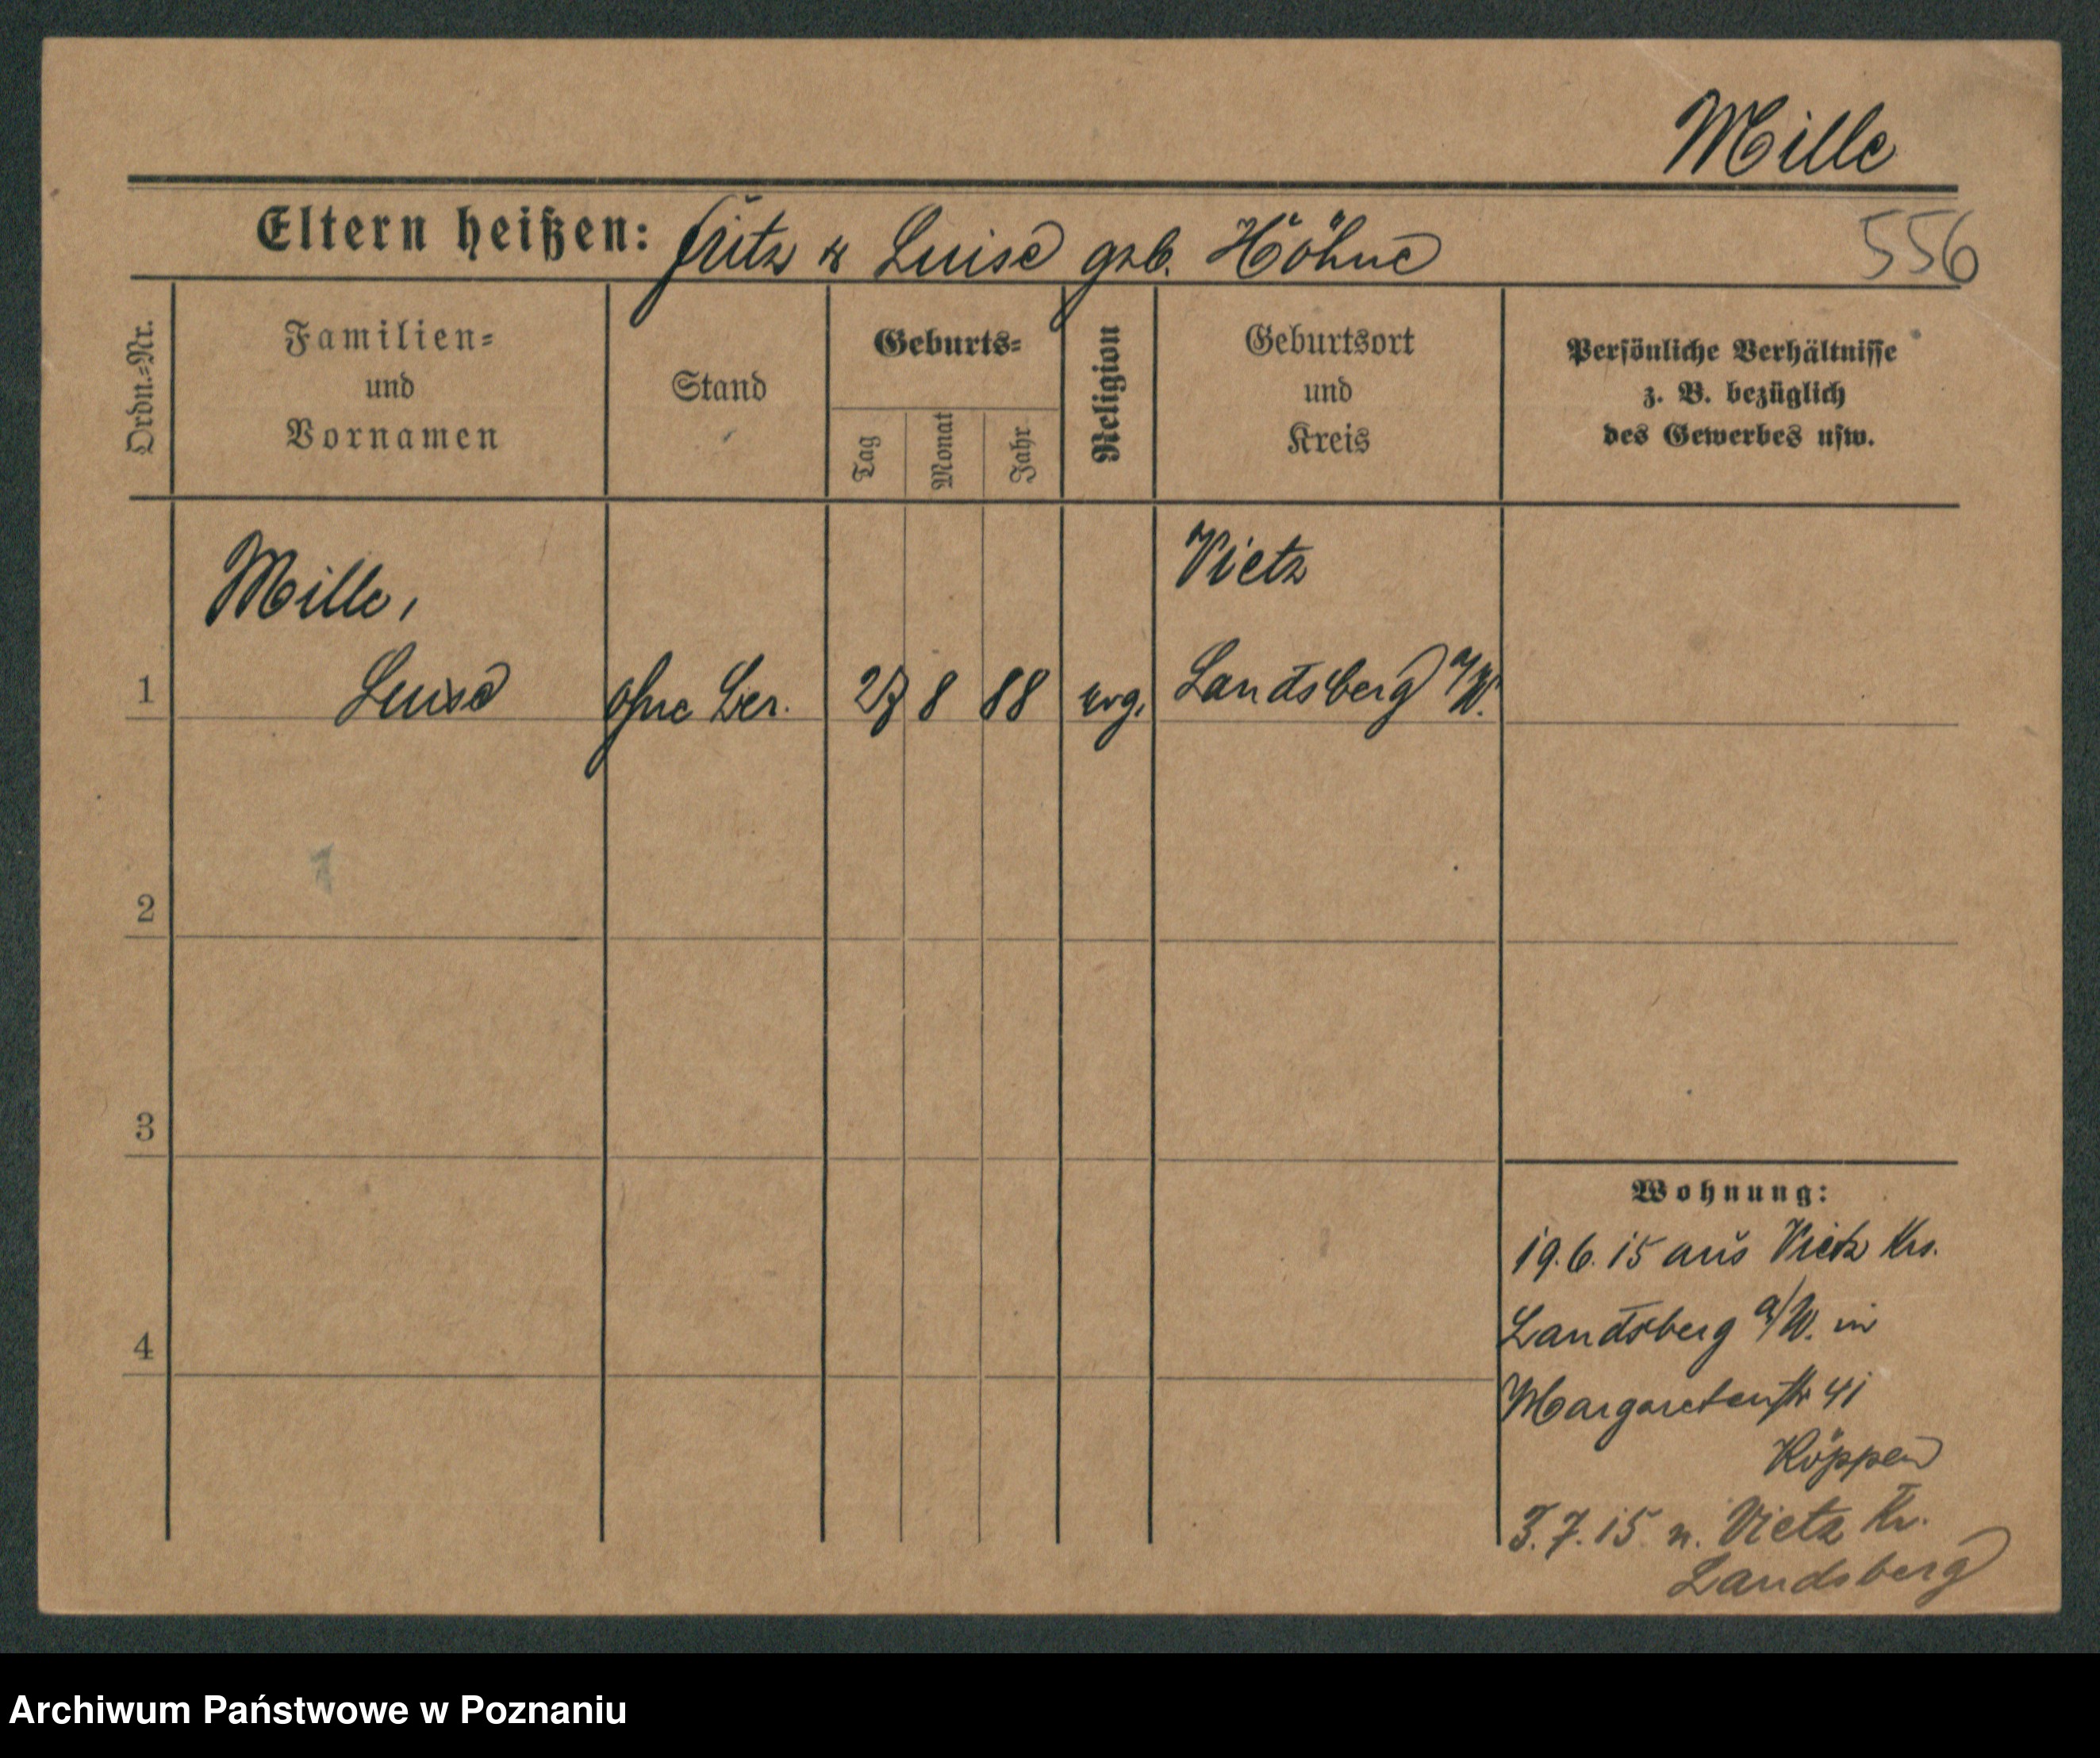 Mille
Eltern heißen: Fritz & Luise geb. Höhne
556
Ordn.=Nr.
Familien=
und
Vornamen
Stand
Geburts=
Tag
Monat
Jahr
Religion
Geburtsort
und
Kreis
Persönliche Verhältnisse
z. B. bezüglich
des Gewerbes usw.
Mille,
Vietz
1 Luise ohne Ber. 27 8 88 evg. Landsberg a/W.
2
3
4
Wohnung:
19.6.15 aus Vietz Krs.
Landsberg a/W. in
Margaretenstr 41
Köppen
3.7.15 n. Vietz Kr.
Landsberg
Archiwum Państwowe w Poznaniu